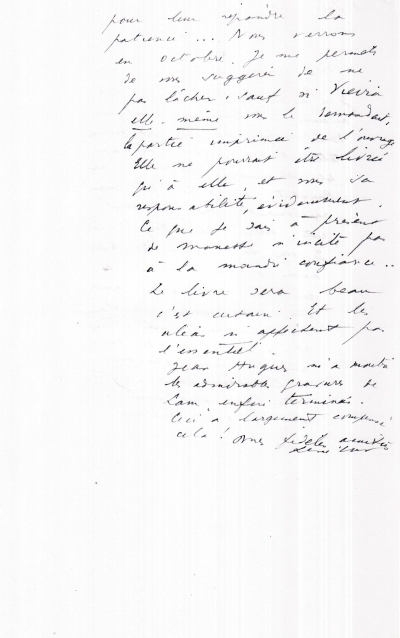 pour leur répondre la
patience... Nous verrons
en octobre. Je me permets
de vous suggérer de ne
pas lâcher, sauf si Vieira
elle-même vous le demandait,
la partie imprimée de l'ouvrage
Elle ne pourrait être livrée
qu'à elle, et sous sa
responsabilité, évidemment.
Ce que je sais à présent
de manesse n'incite pas
à la moindre confiance..
Le livre sera beau
c'est certain. Et les
aléas n'affectent pas
l'essentiel.
Jean Hugues m'a montré
les admirables gravures de
Lam enfin terminées.
Ceci a largement compensé
cela! fidèles amitiés